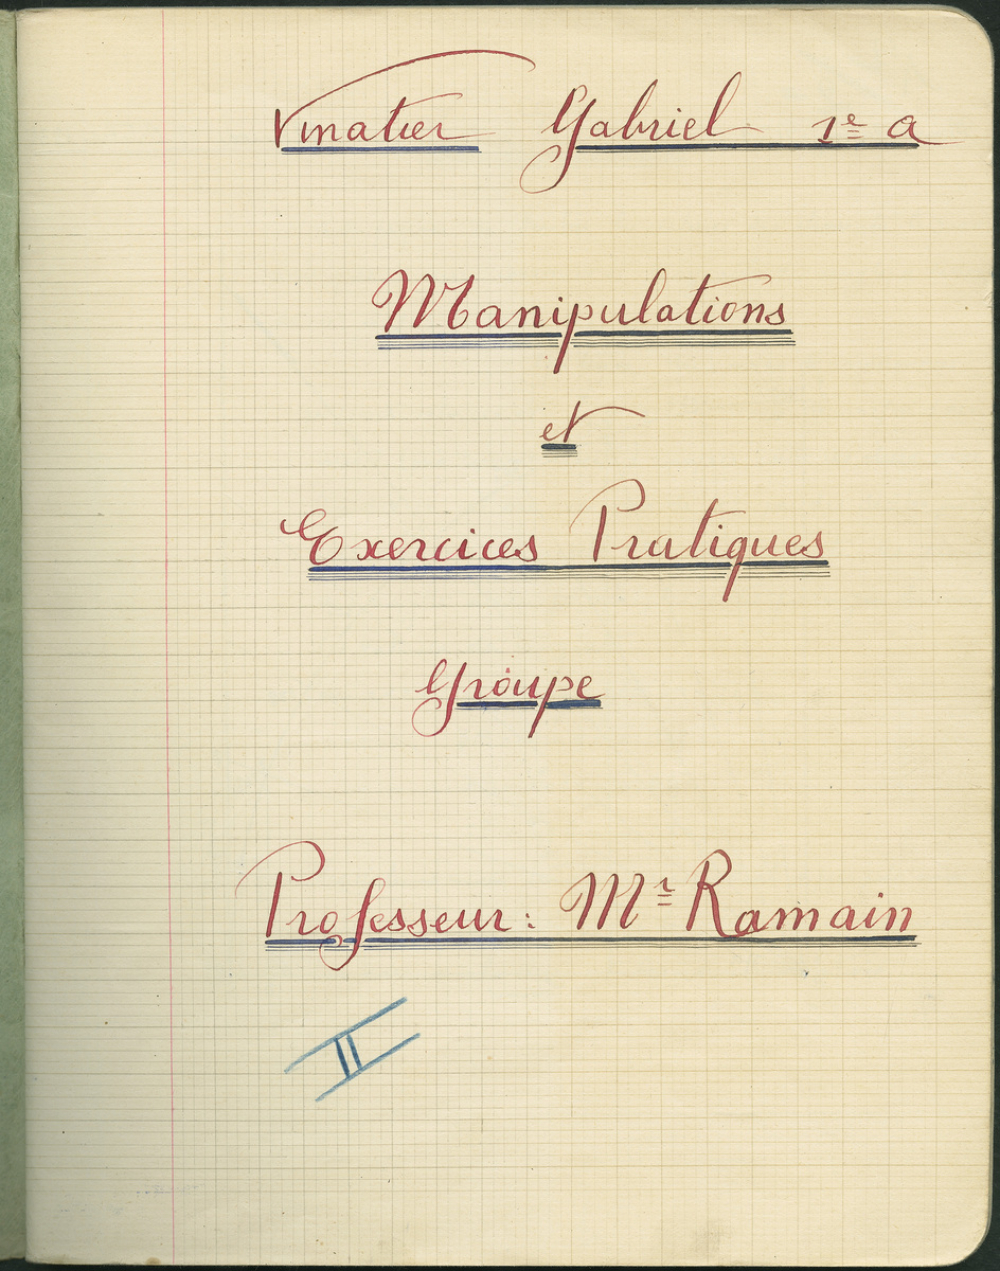 Vinatier Gabriel 1e a
Manipulations
et
Exercices Pratiques
Groupe
Professeur: Mr Ramain
II